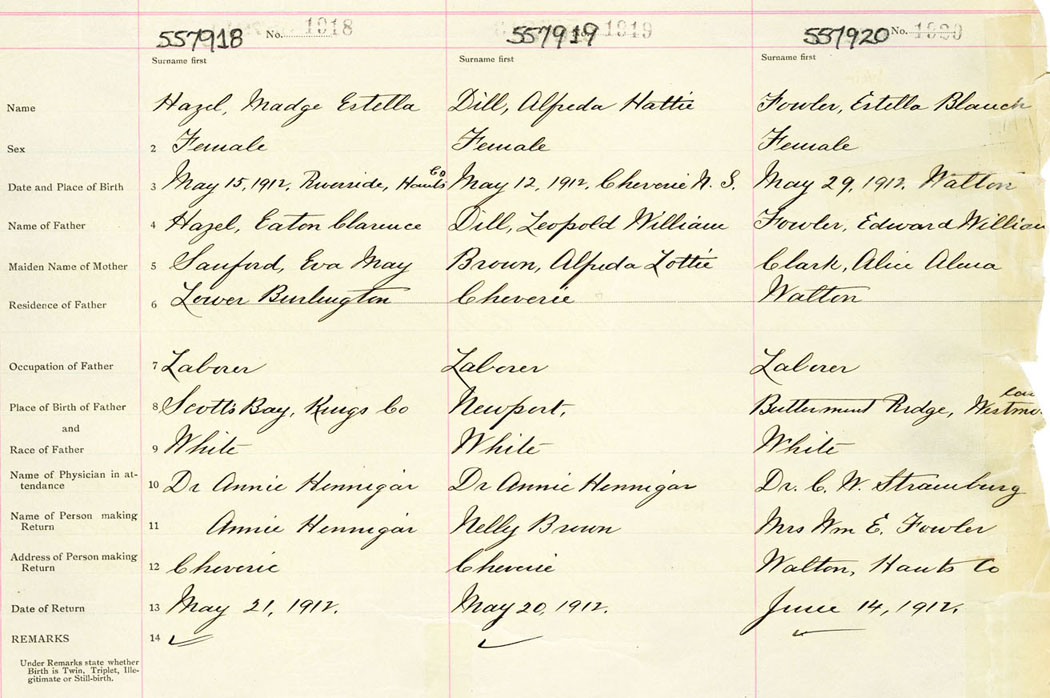 557918 No. 1918 557919 1919 557920 No. 1920
Surname first Surname first Surname first
Name Hazel, Madge Estella Dill, Alfreda Hattie Fowler, Estella Blanch
Sex 2 Female Female Female
Date and Place of Birth 3 May 15, 1912, Riverside, Hants Co May 12, 1912, Cheverie N. S. May 29, 1912. Walton
Name of Father 4 Hazel, Eaton Clarence Dill, Leopold William Fowler, Edward William
Maiden Name of Mother 5 Sanford, Eva May Brown, Alfreda Lottie Clark, Alice Alma
Residence of Father 6 Lower Burlington Cheverie Walton
Occupation of Father 7 Laborer Laborer Laborer
Place of Birth of Father 8 Scotts Bay, Kings Co Newport, Butternut Ridge,
and
Race of Father 9 White White White
Name of Physician in at-
tendance 10 Dr Annie Hennigar Dr Annie Hennigar Dr. C. W.
Name of Person making
Return 11 Annie Hennigar Nelly Brown Mrs Wm E. Fowler
Address of Person making
Return 12 Cheverie Cheverie Walton, Hants Co
Date of Return 13 May 21, 1912. May 20, 1912. June 14, 1912.
REMARKS 14
Under Remarks state whether
Birth is Twin, Triplet, Ille-
gitimate or Still-birth.